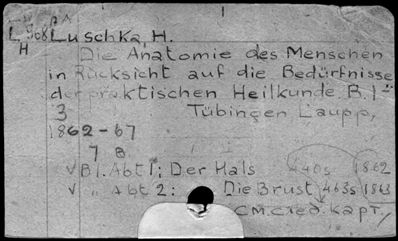 Luschka, H.
Die Anatomie des Menschen
in Rücksicht auf die Bedürfnisse
der praktischen Heilkunde. B. 1-
3 Tübingen Laupp,
1862-67
7 B
v B1. Abt 1: Der Hals 440s 1862
v " Abt 2: Die Brust 463s 1863
см. след. карт.